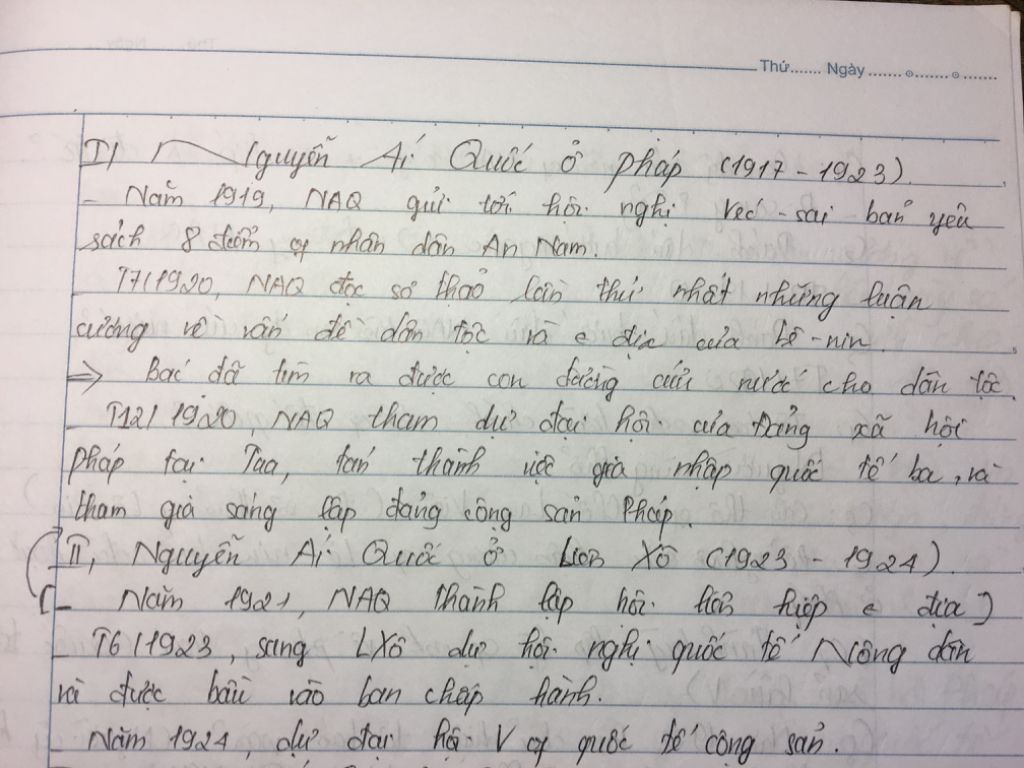 Thứ....... Ngày .......o.......o.......
I) Nguyễn Ái Quốc ở Pháp (1917 - 1923).
- Năm 1919, NAQ gửi tới hội nghị Véc-sai bản yêu
sách 8 điểm of nhân dân An Nam.
- T7/1920, NAQ đọc sơ thảo lần thứ nhất những luận
cương về vấn đề dân tộc và e địa của Lê-nin.
=> Bác đã tìm ra được con đường cứu nước cho dân tộc.
- T12/1920 NAQ tham dự đại hội của Đảng xã hội
Pháp tại Tua, tán thành việc gia nhập quốc tế ba, và
tham gia sáng lập đảng cộng sản Pháp.
II, Nguyễn Ái Quốc ở Liên Xô (1923 - 1924).
[- Năm 1921, NAQ thành lập hội liên hiệp e địa]
- T6/1923, sang LXô dự hội nghị quốc tế Nông dân
và được bầu vào ban chấp hành.
- Năm 1924, dự đại hội V of quốc tế cộng sản.